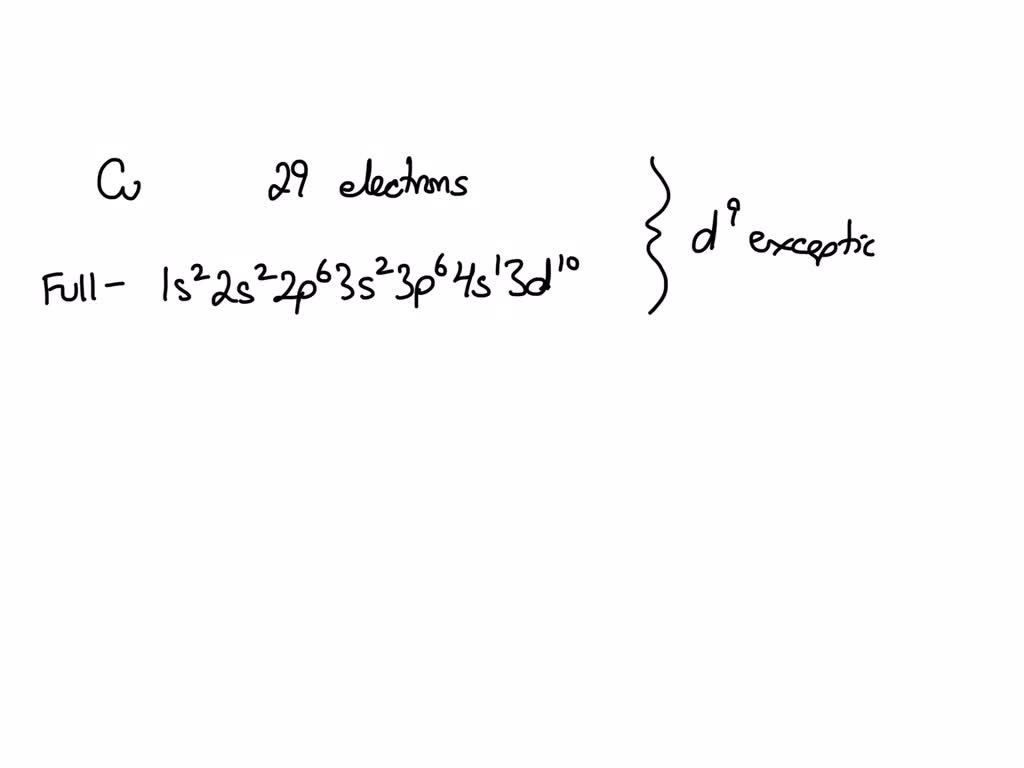 Cu 29 electrons
Full- 1s²2s²2p⁶3s²3p⁶4s¹3d¹⁰
d⁹ exceptic